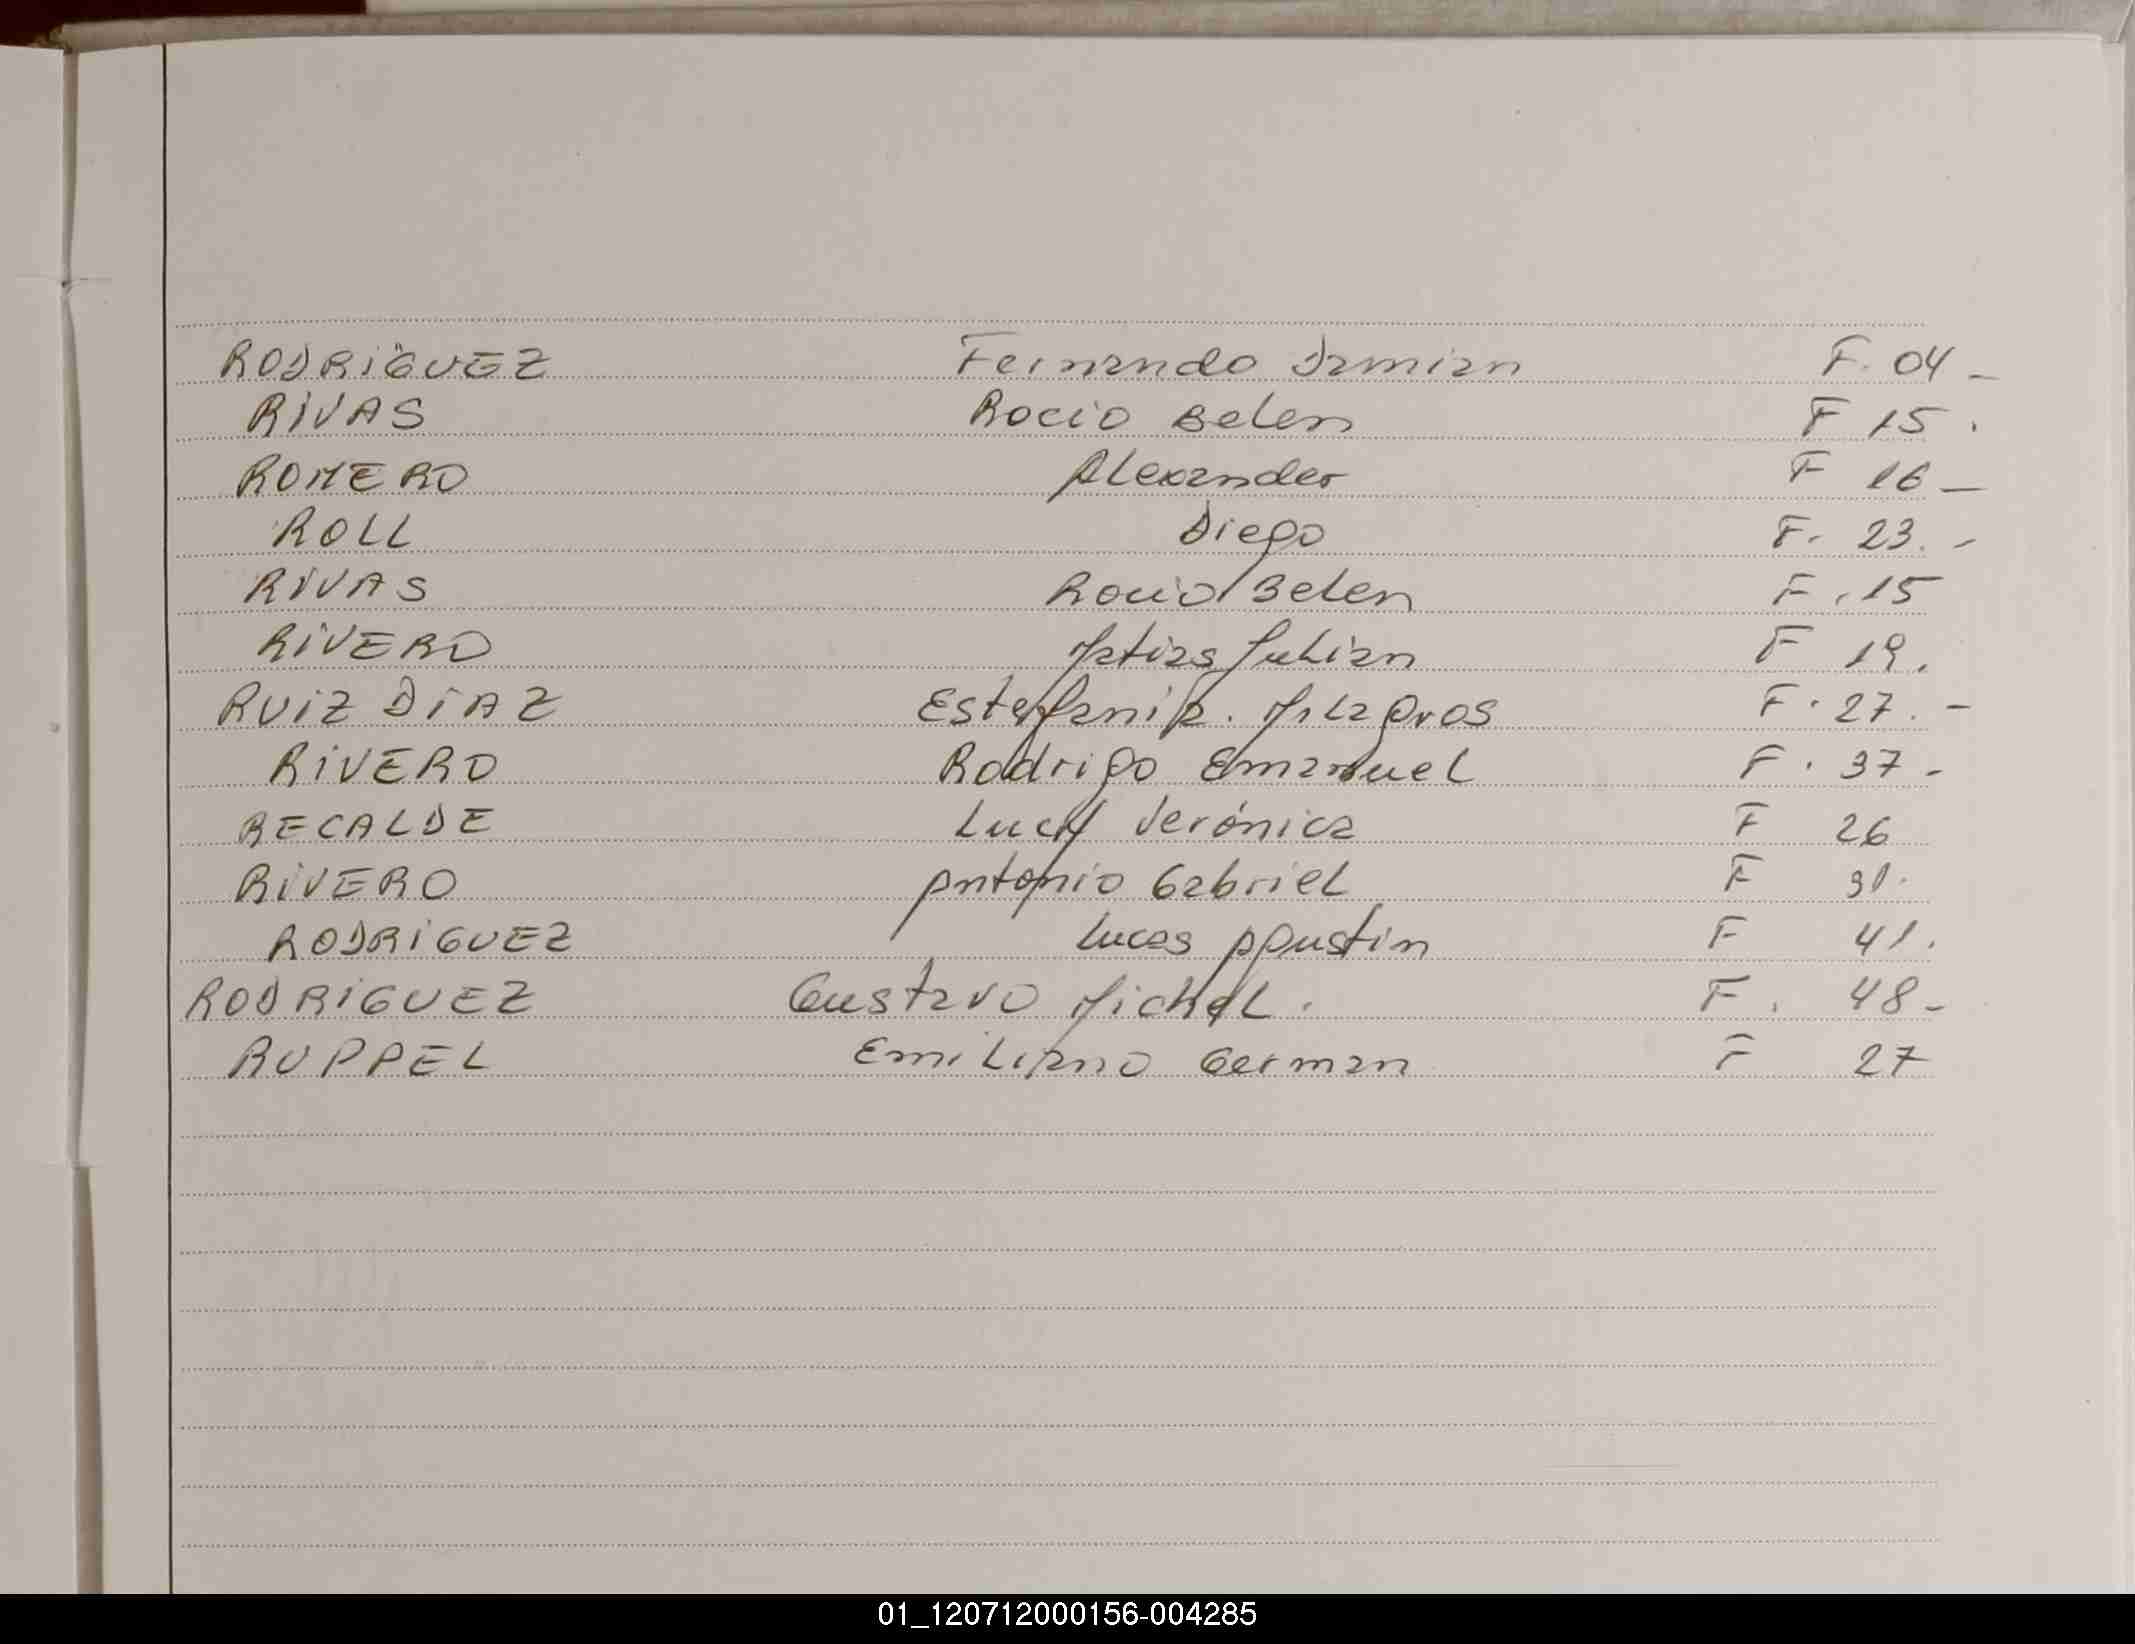 RODRIGUEZ Fernando Damian F. 04 -
RIVAS Rocio Belen F 15.
ROMERO Alexander F 16 -
ROLL Diego F. 23. -
RIVAS Rocio Belen F. 15
RIVERO Matias Julian F 19.
RUIZ DIAZ Estefania. Milagros F. 27. -
RIVERO Rodrigo Emanuel F. 37 -
RECALDE Lucy Verónica F 26
RIVERO Antonio Gabriel F 31.
RODRIGUEZ Lucas Agustin F 41.
RODRIGUEZ Gustavo Michel. F. 48 -
RUPPEL Emiliano German F 27
01_120712000156-004285